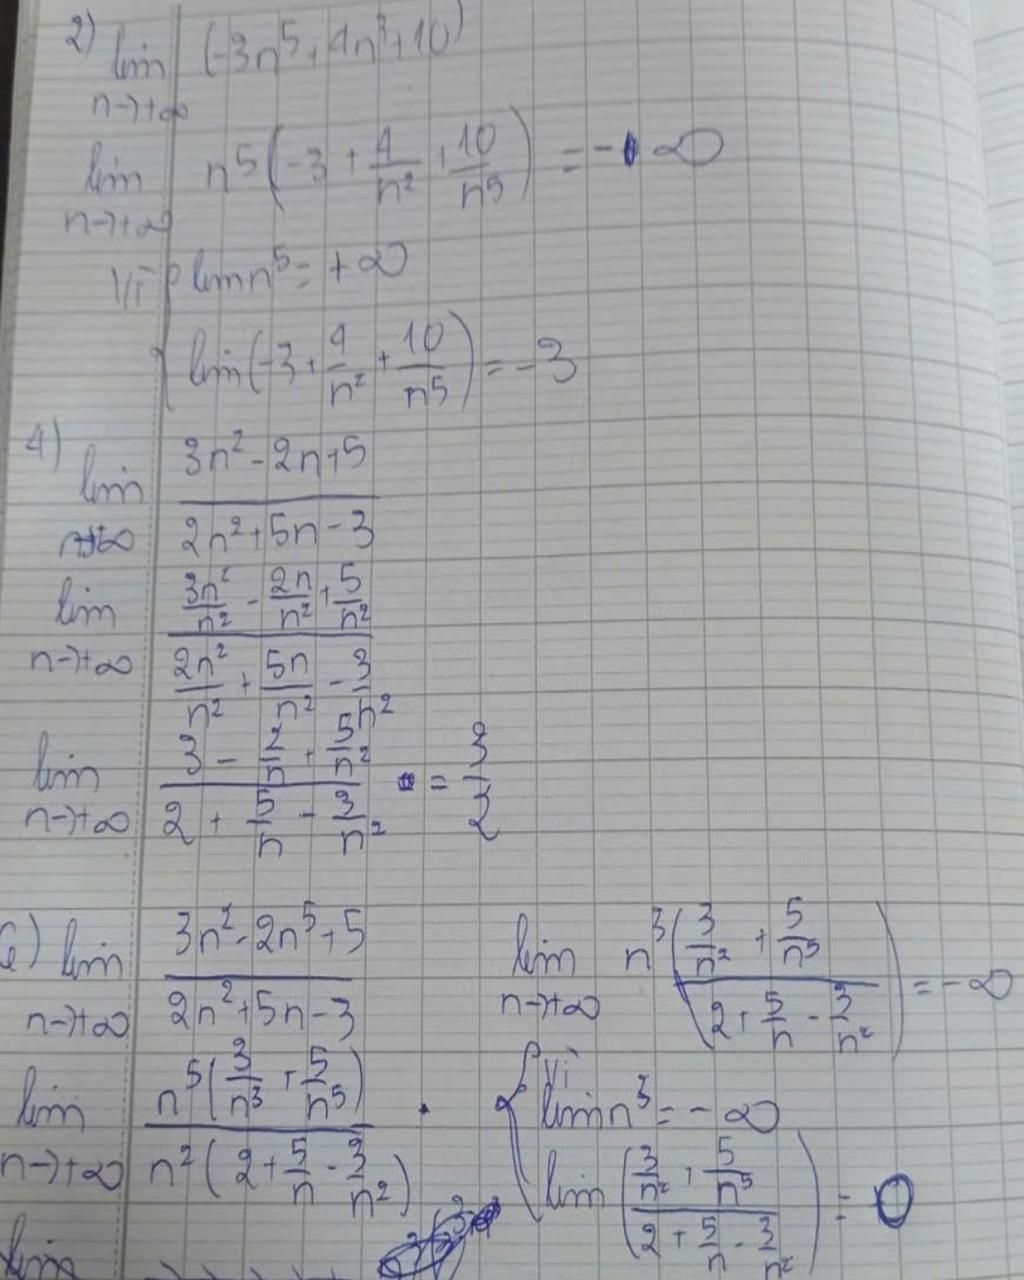 2) lim (-3n⁵ + 4n³ + 10)
n→+∞
lim n⁵ (-3 + 4/n² + 10/n⁵) = -∞
n→+∞
Vì { lim n⁵ = +∞
lim (-3 + 4/n² + 10/n⁵) = -3
4) lim (3n² - 2n + 5)/(2n² + 5n - 3)
n→+∞
lim (3n²/n² - 2n/n² + 5/n²)/(2n²/n² + 5n/n² - 3/n²)
n→+∞
lim (3 - 2/n + 5/n²)/(2 + 5/n - 3/n²) = 3/2
n→+∞
6) lim (3n² - 2n⁵ + 5)/(2n² + 5n - 3)
n→+∞
lim n⁵(3/n³ + 5/n⁵)/n²(2 + 5/n - 3/n²)
n→+∞
lim
lim n³ ((3/n² + 5/n⁵)/(2 + 5/n - 3/n²)) = -∞
n→+∞
{ Vì
lim n³ = -∞
lim ((3/n² + 5/n⁵)/(2 + 5/n - 3/n²)) = 0